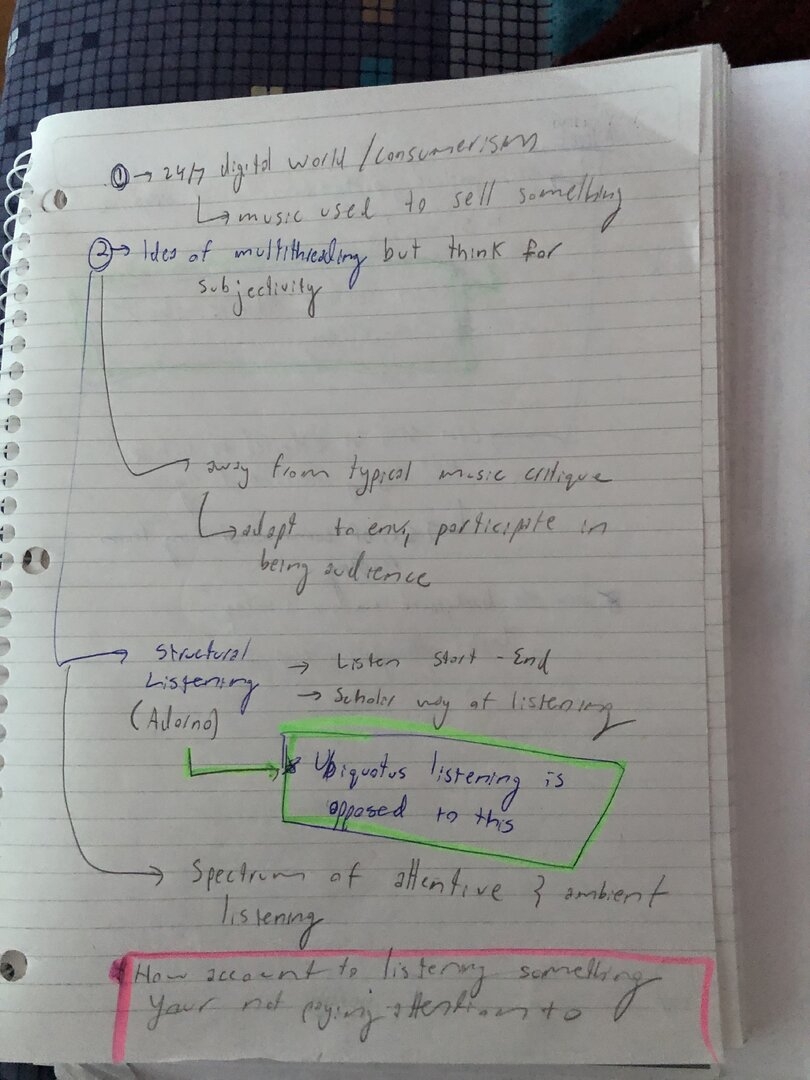 ① → 24/7 digital world / consumerism
↳ music used to sell something
② → Idea of multithreading but think for
subjectivity
→ away from typical music critique
↳ adapt to env, participate in
being audience
→ Structural → Listen Start - End
Listening → Scholar way of listening
(Adorno)
→ * Ubiquotus listening is
opposed to this
→ Spectrum of attentive & ambient
listening
* How account to listening something
your not paying attention to